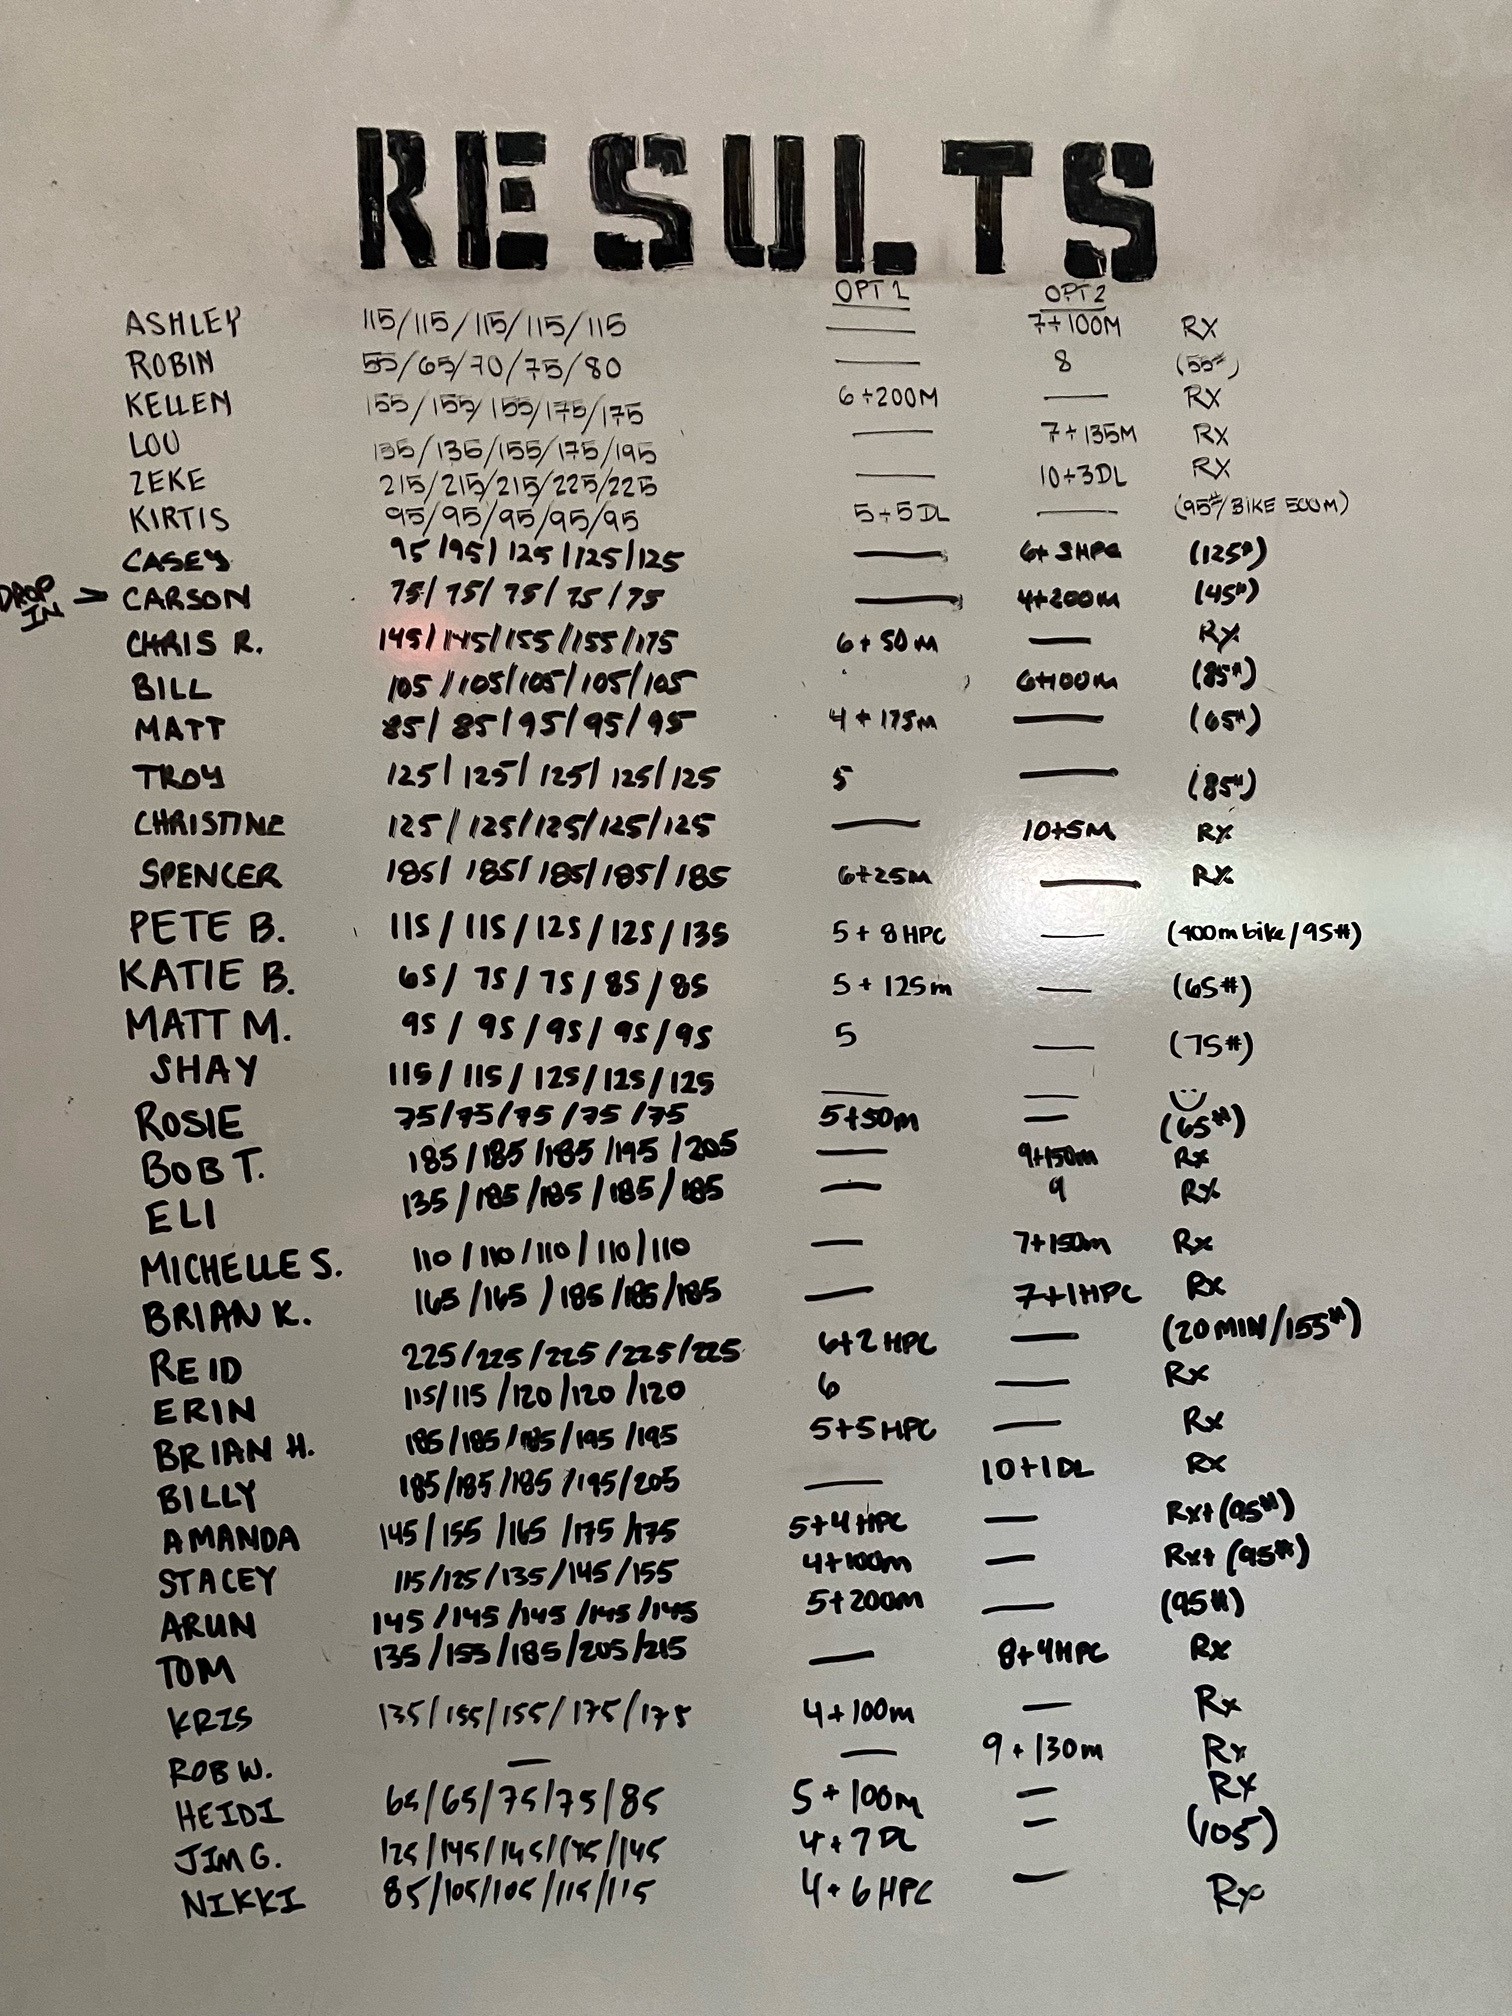 RESULTS
OPT 1 OPT 2
ASHLEY 115/115/115/115/115 — 7+100M RX
ROBIN 55/65/70/75/80 — 8 (55#)
KELLEN 155/155/155/175/175 6+200M — RX
LOU 135/135/155/175/195 — 7+135M RX
ZEKE 215/215/215/225/225 — 10+3DL RX
KIRTIS 95/95/95/95/95 5+5DL — (95#/BIKE 500M)
CASEY 95/95/125/125/125 — 6+3HPC (125#)
DROP IN > CARSON 75/75/75/75/75 — 4+200M (45#)
CHRIS R. 145/145/155/155/175 6+50M — RX
BILL 105/105/105/105/105 6+100M (85#)
MATT 85/85/95/95/95 4+175M — (65#)
TROY 125/125/125/125/125 5 — (85#)
CHRISTINE 125/125/125/125/125 — 10+5M RX
SPENCER 185/185/185/185/185 6+25M — RX
PETE B. 115/115/125/125/135 5+8HPC — (400m bike/95#)
KATIE B. 65/75/75/85/85 5+125m — (65#)
MATT M. 95/95/95/95/95 5 — (75#)
SHAY 115/115/125/125/125 — —
ROSIE 75/75/75/75/75 5+50m — (65#)
BOB T. 185/185/185/195/205 — 9+150m Rx
ELI 135/185/185/185/185 — 9 RX
MICHELLE S. 110/110/110/110/110 — 7+150m Rx
BRIAN K. 165/165/185/185/185 — 7+1HPC Rx
REID 225/225/225/225/225 6+2HPC — (20MIN/155#)
ERIN 115/115/120/120/120 6 — Rx
BRIAN H. 185/185/185/195/195 5+5HPC — Rx
BILLY 185/185/185/195/205 — 10+1DL Rx
AMANDA 145/155/165/175/175 5+4HPC — Rx+(95#)
STACEY 115/125/135/145/155 4+100m — Rx+(95#)
ARUN 145/145/145/145/145 5+200m — (95#)
TOM 135/155/185/205/215 — 8+4HPC Rx
KRIS 135/155/155/175/175 4+100m — Rx
ROB W. — — 9+130m Rx
HEIDI 65/65/75/75/85 5+100m — RX
JIM G. 125/145/145/145/145 4+7DL — (105)
NIKKI 85/105/105/115/115 4+6HPC — Rx